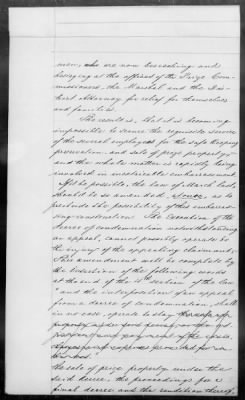 men, who are now beseeching and
besieging at the offices of the Prize Com-
missioners, the Marshal and the Dis-
trict Attorney for relief for themselves
and families.
The result is, that it is becoming
impossible to secure the requisite service
of the several employed for the safe keeping
preservation and sale of prize property—
and the whole matter is rapidly being
involved in inextricable embarrassment.
If it be possible, the law of March last,
should be so amended, at once, as to
preclude the possibility of this embarrass-
ing construction. The execution of the
decree of condemnation notwithstanding
an appeal, cannot possibly operate to
the injury of the appealing claimant.
This amendment will be complete by
the insertion of the following words
at the end of the section of the law
"and the interposition of an appeal
from a decree of condemnation, shall
in no case, operate to stay
the sale of prize property under the
said decree, the proceedings for a
final decree and the rendition thereof,